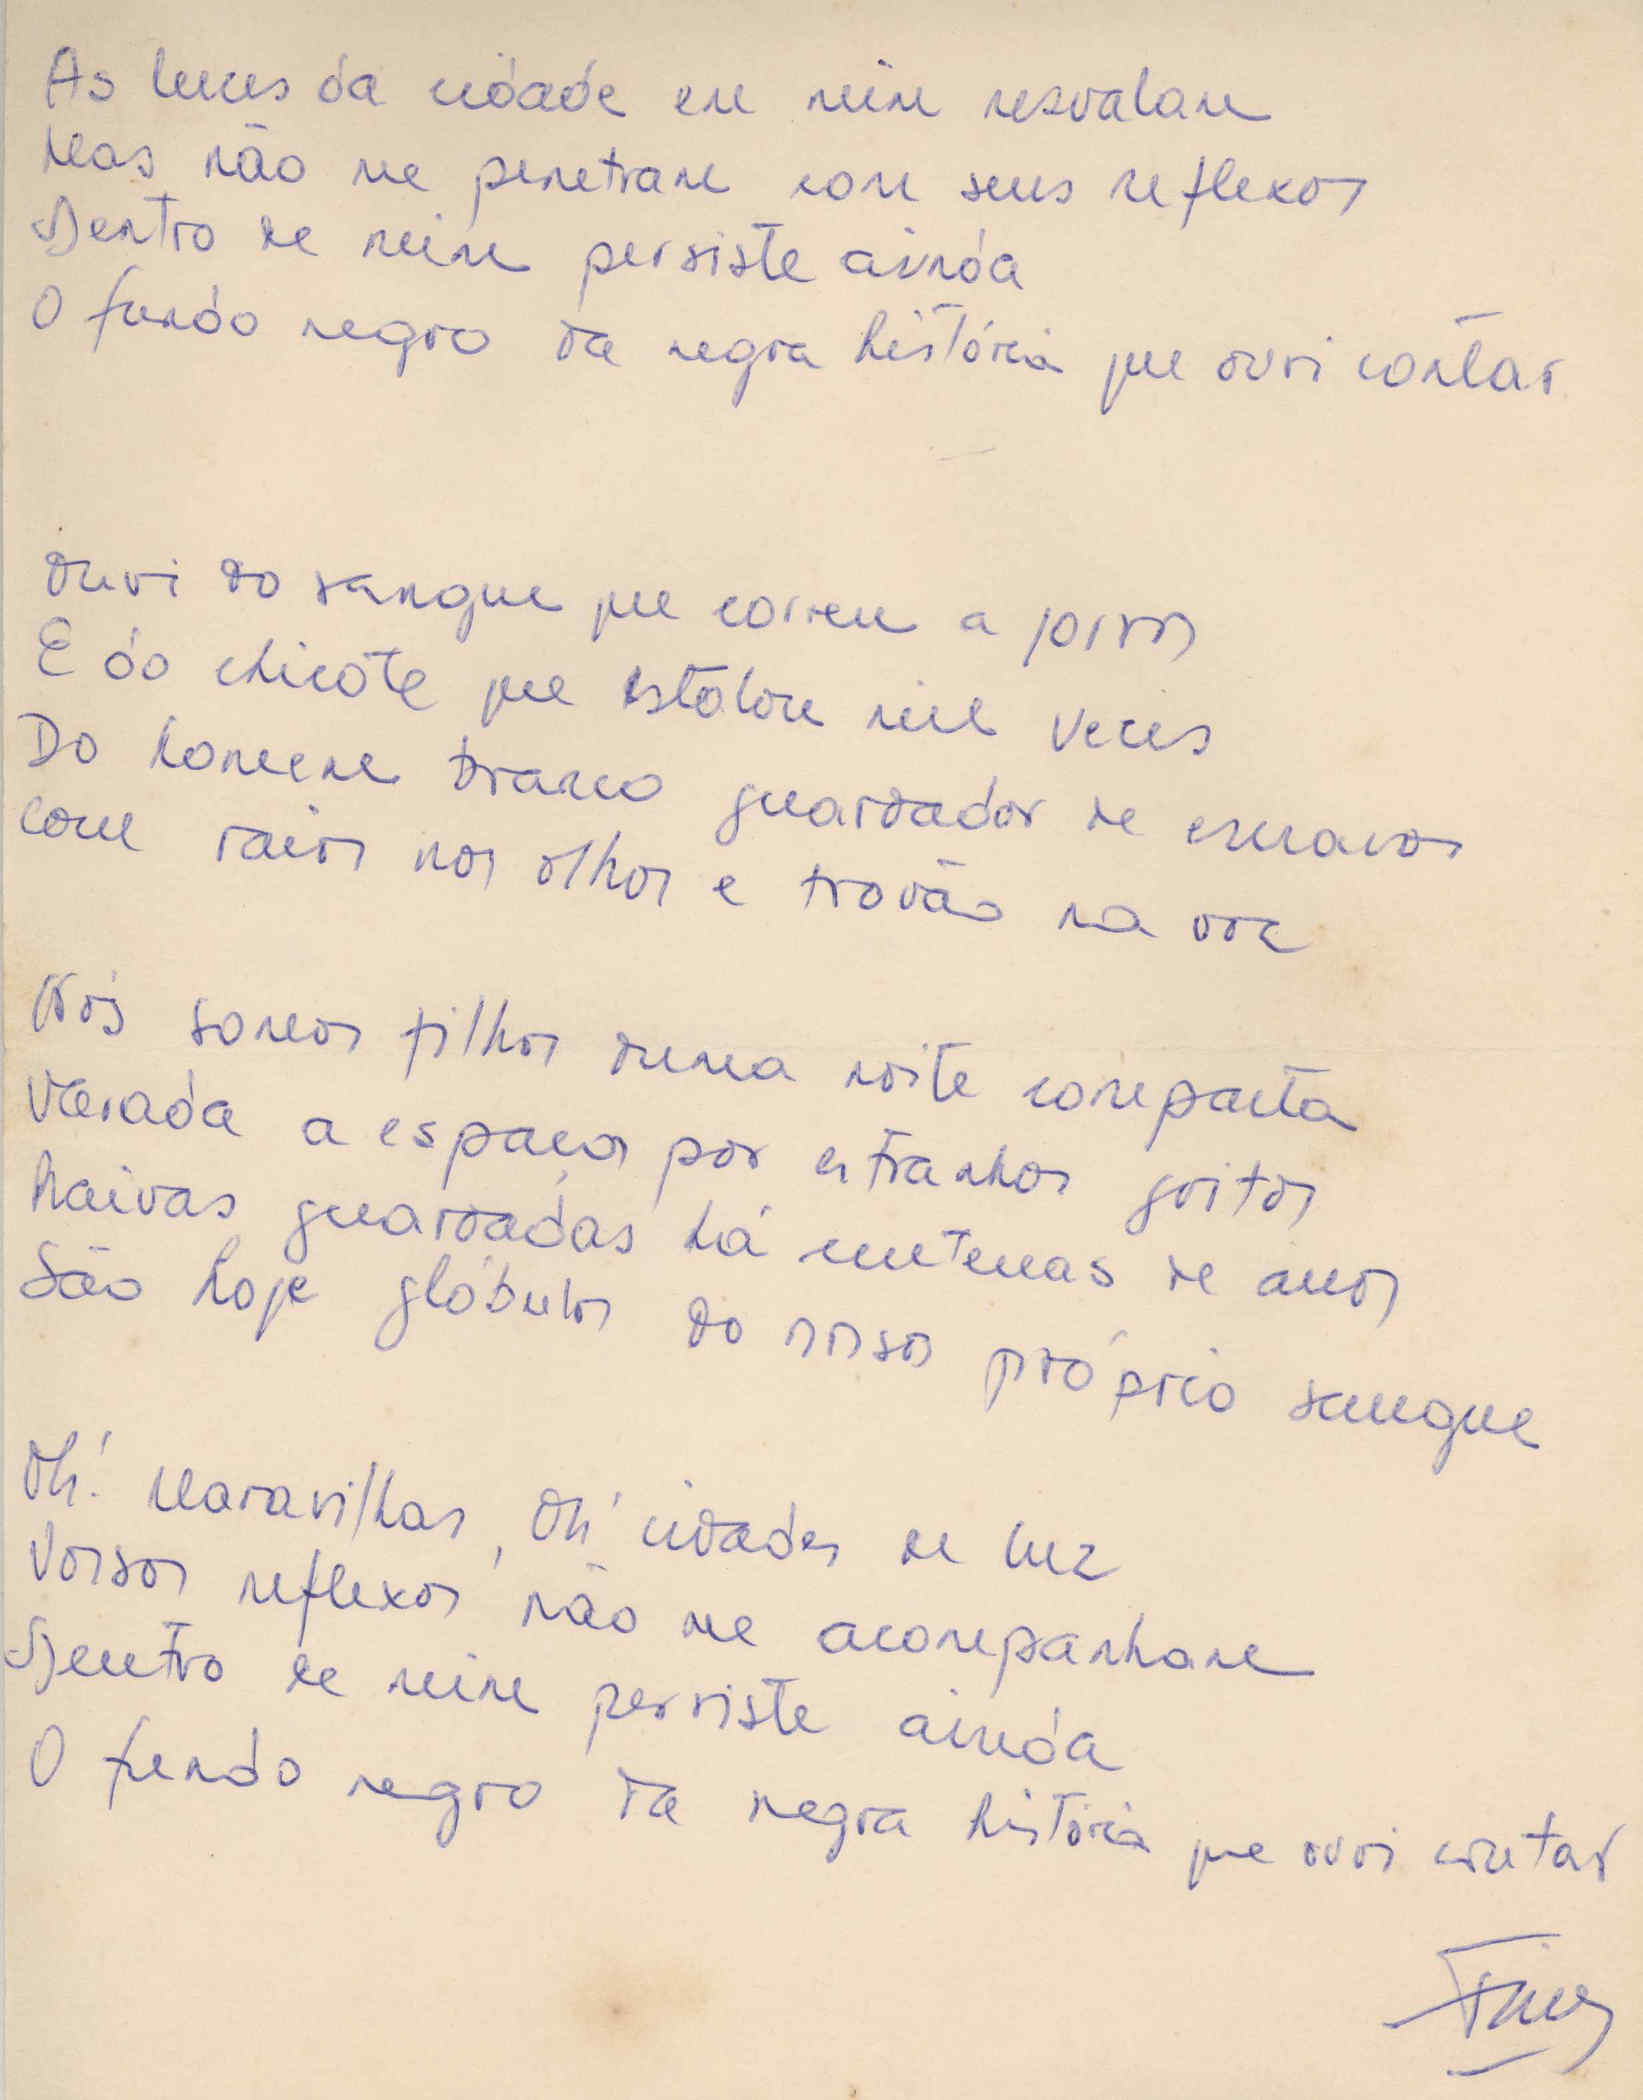 As luzes da cidade em mim resvalam
Mas não me penetram com seus reflexos
Dentro de mim persiste ainda
O fundo negro da negra história que ouvi contar
Ouvi do sangue que correu a jorros
E do chicote que estalou mil vezes
Do homem branco guardador de escravos
Com raios nos olhos e trovão na voz
Nós somos filhos duma noite compacta
Varada a espaços por estranhos gritos
Raivas guardadas há centenas de anos
São hoje glóbulos do nosso próprio sangue
Oh! Maravilhas, Oh! cidades de luz
Vossos reflexos não me acompanham
Dentro de mim persiste ainda
O fundo negro da negra história que ouvi contar